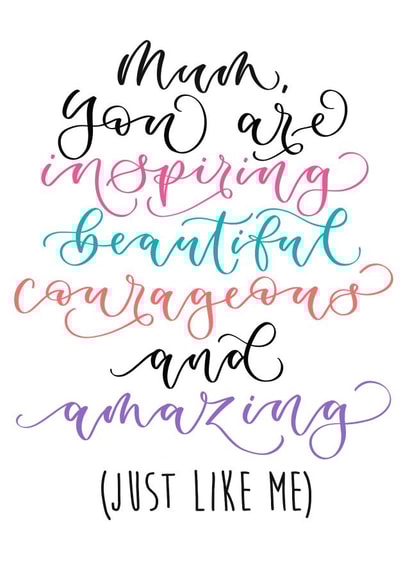 Mum,
you are
inspiring
beautiful
courageous
and
amazing
(JUST LIKE ME)